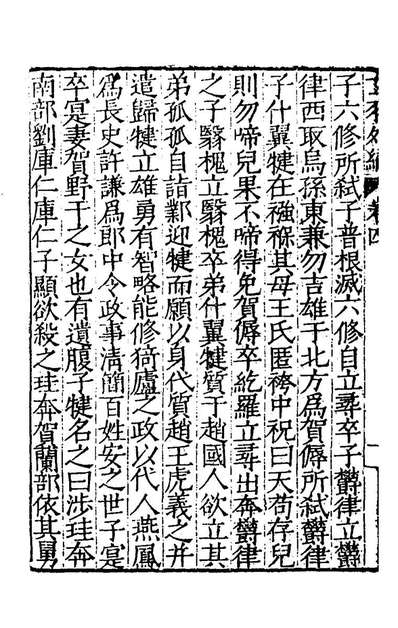 卷四
一
子六修所弒子普根滅六修自立尋卒子欝律立欝
律西取烏孫東兼勿吉雄于北方爲賀傉所弒欝律
子什翼犍在襁褓其母王氏匿袴中祝曰天苟存兒
則勿啼兒果不啼得免賀傉卒紇羅立尋出奔欝律
之子翳槐立翳槐卒弟什翼犍質于趙國人欲立其
弟孤孤自詣鄴迎犍而願以身代質趙王虎義之并
遣歸犍立雄勇有智略能修猗盧之政以代人燕鳳
爲長史許謙爲郎中令政事清簡百姓安之世子寔
卒寔妻賀野于之女也有遺腹子犍名之曰涉珪奔
南部劉庫仁庫仁子顯欲殺之珪奔賀蘭部依其舅